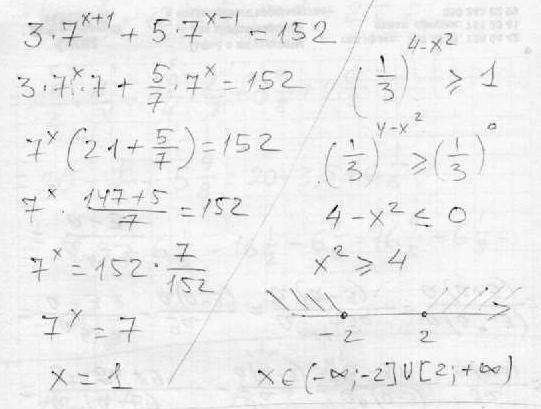 3·7^(x+1) + 5·7^(x-1) = 152
3·7^x·7 + 5/7·7^x = 152
7^x (21 + 5/7) = 152
7^x · (147+5)/7 = 152
7^x = 152 · 7/152
7^x = 7
x = 1
(1/3)^(4-x²) ≥ 1
(1/3)^(4-x²) ≥ (1/3)^0
4-x² ≤ 0
x² ≥ 4
-2 2
x ∈ (-∞; -2] ∪ [2; +∞)